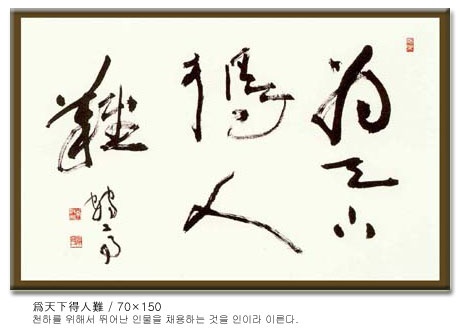 爲天下
得人
難
爲天下得人難 / 70×150
천하를 위해서 뛰어난 인물을 채용하는 것을 인이라 이른다.